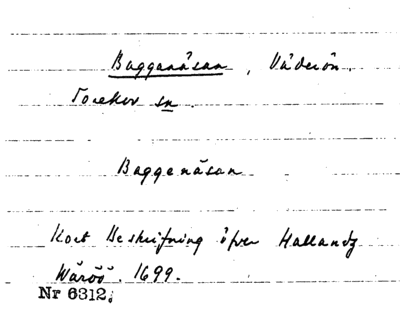 Bagganäsan, Väderön.
Torekov sn
Baggenäsan
Kort Beskrifning öfver Hallandz
Wäröö. 1699.
Nr 6312.